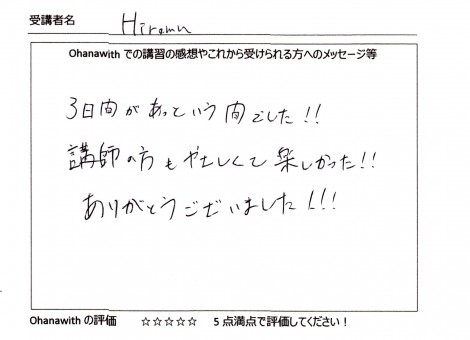 受講者名 Hiramu
Ohanawith での講習の感想やこれから受けられる方へのメッセージ等
3日間があっという間でした!!
講師の方もやさしくて楽しかった!!
ありがとうございました!!!
Ohanawith の評価 ☆☆☆☆☆ 5点満点で評価してください!